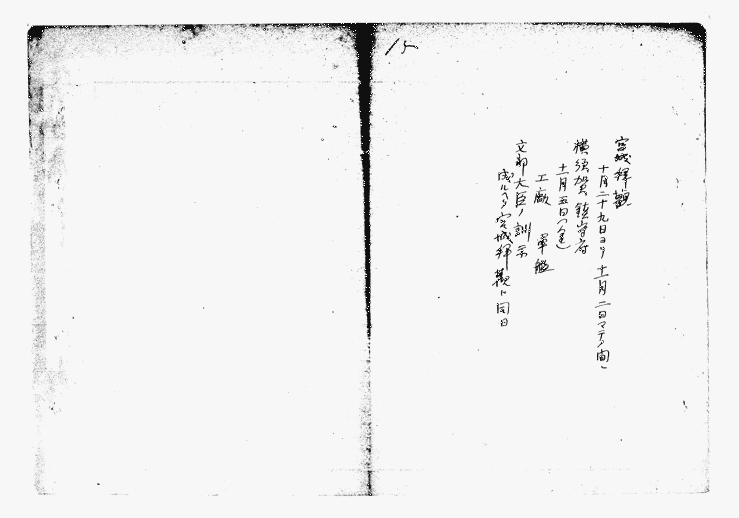 15
宮城拜觀
十月二十九日ヨリ十一月二日マテノ間ニ
横須賀鎮守府
十一月五日(金)
工廠 軍艦
文部大臣ノ訓示
成ルヘク宮城拜觀ト同日